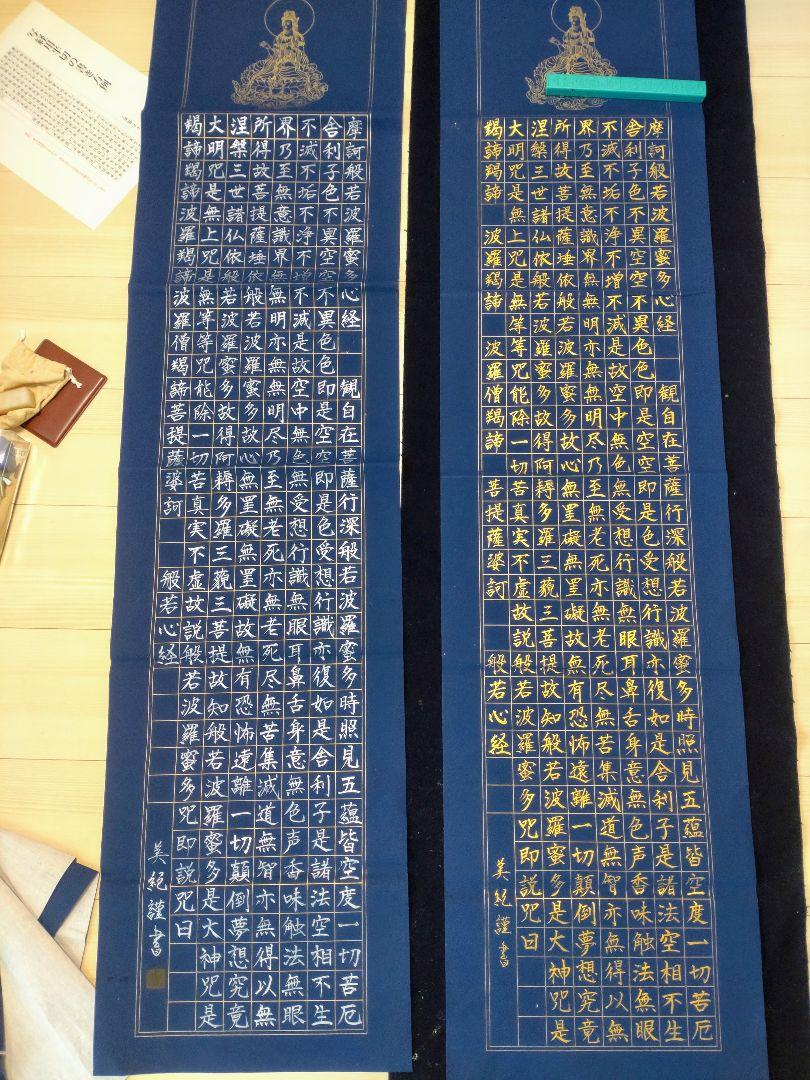 摩訶般若波羅蜜多心経 観自在菩薩行深般若波羅蜜多時照見五蘊皆空度一切苦厄
舎利子色不異空空不異色色即是空空即是色受想行識亦復如是舎利子是諸法空相不生
不滅不垢不浄不増不減是故空中無色無受想行識無眼耳鼻舌身意無色声香味触法無眼
界乃至無意識界無無明亦無無明尽乃至無老死亦無老死尽無苦集滅道無智亦無得以無
所得故菩提薩埵依般若波羅蜜多故心無罣礙無罣礙故無有恐怖遠離一切顛倒夢想究竟
涅槃三世諸仏依般若波羅蜜多故得阿耨多羅三藐三菩提故知般若波羅蜜多是大神咒是
大明咒是無上咒是無等等咒能除一切苦真実不虚故説般若波羅蜜多咒即説咒曰
羯諦羯諦 波羅羯諦 波羅僧羯諦 菩提薩婆訶 般若心経
謹書
摩訶般若波羅蜜多心経 観自在菩薩行深般若波羅蜜多時照見五蘊皆空度一切苦厄
舎利子色不異空空不異色色即是空空即是色受想行識亦復如是舎利子是諸法空相不生
不滅不垢不浄不増不減是故空中無色無受想行識無眼耳鼻舌身意無色声香味触法無眼
界乃至無意識界無無明亦無無明尽乃至無老死亦無老死尽無苦集滅道無智亦無得以無
所得故菩提薩埵依般若波羅蜜多故心無罣礙無罣礙故無有恐怖遠離一切顛倒夢想究竟
涅槃三世諸仏依般若波羅蜜多故得阿耨多羅三藐三菩提故知般若波羅蜜多是大神咒是
大明咒是無上咒是無等等咒能除一切苦真実不虚故説般若波羅蜜多咒即説咒曰
羯諦羯諦波羅羯諦波羅僧羯諦菩提薩婆訶
般若心経
謹書